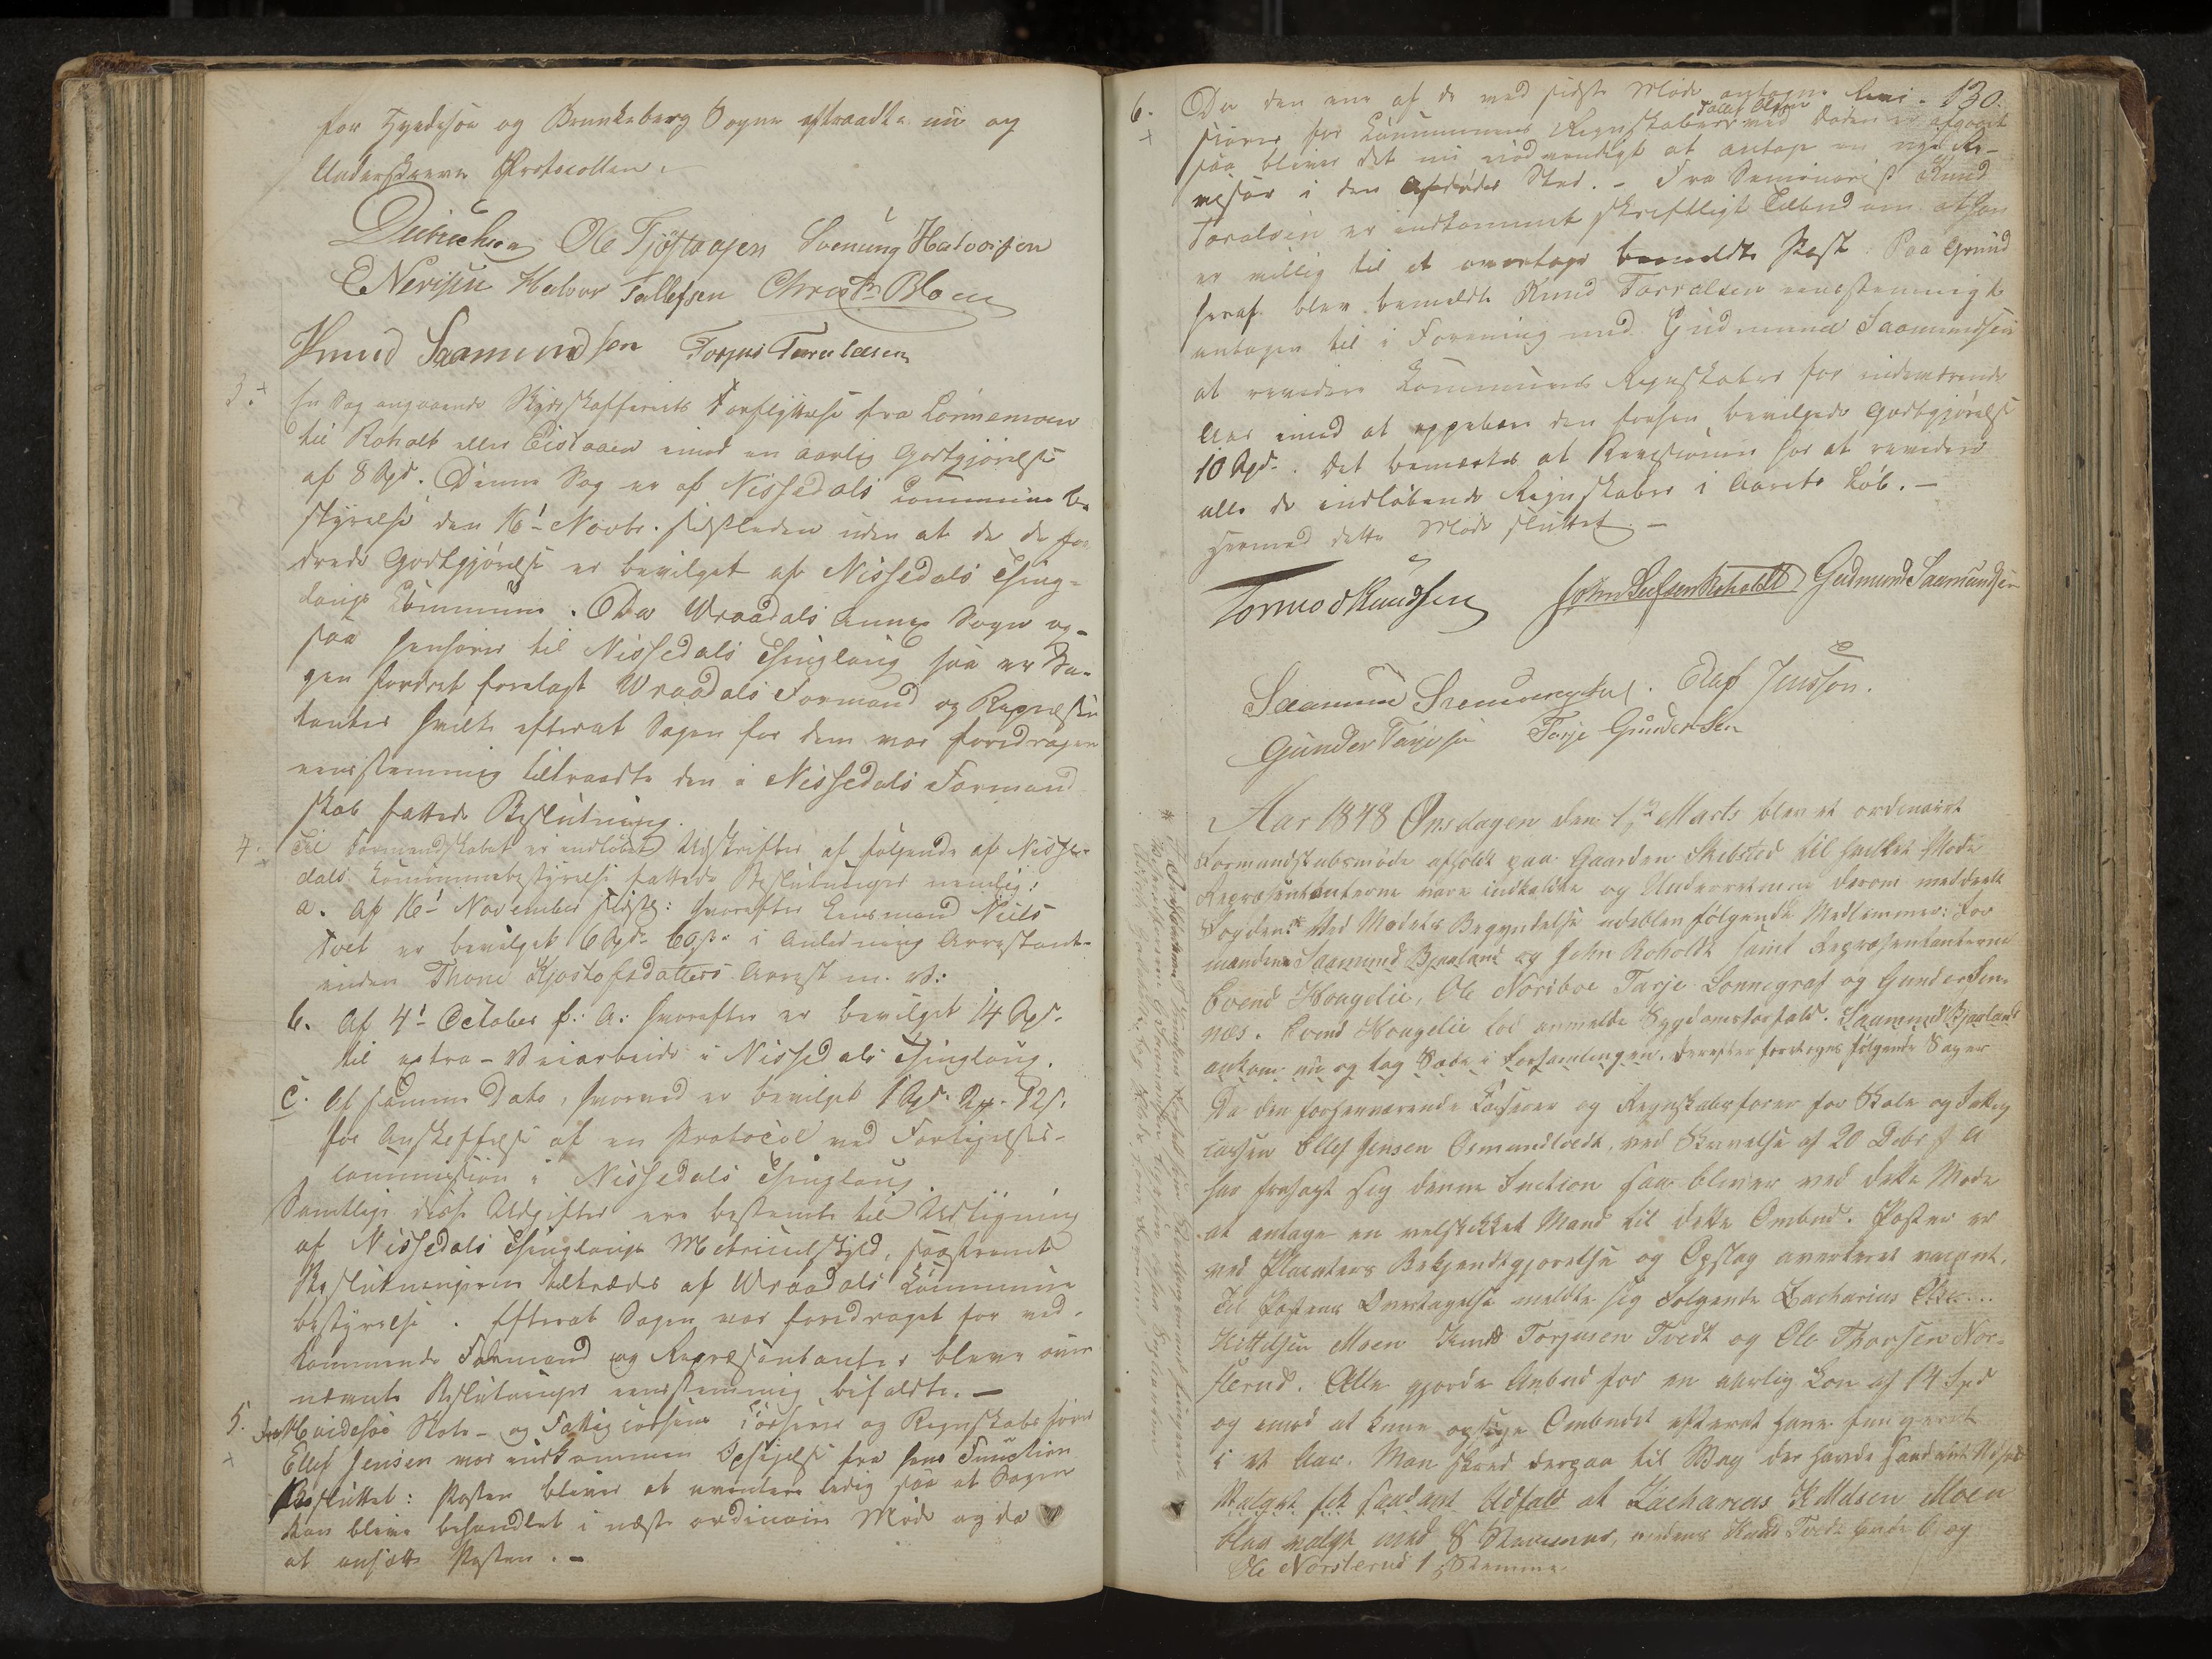 for Hvidesøe og Brunkeberg Sogne aftraadte nu og
Underskrev Protocollen.
Ole Tjöstolfsen Svenung Halvorsen
Halvor Tallefsen Christn Blom
Knud Saamundsen Torjus Taraldsen
3. En Sag angaaende Skydsskafferiets Forflyttelse fra
til Roholt eller imod en aarlig Godtgjörelse
af 8 Spd. Denne Sag er af Nissedals Commune be-
styrelse den 16de Novbr. sidstleden uden at de for
drede Godtgjörelse er bevilget af Nissedals Thing-
laugs Commune. Da Vraadals Annex Sogn og-
saa henhører til Nissedals Thinglaug saa er Sa-
gen fordret forelagt Vraadals Formænd og Repræsen
tanter hvilke efterat Sagen for dem var foredragen
eenstemmig tiltraadte den i Nissedals Formand
skab fattede Beslutning.
4. Til Formandskabet er indløbet Udskrifter af følgende af Nisse-
dals Communebestyrelse fattede Beslutninger nemlig:
a. Af 16de November sidstl: hvorefter Lensmand Niels
Tvet er bevilget 6 Spd. 60 s. i Anledning Arrestant-
inden Thone Kjostofsdatters Arrest m. v:
b. Af 4de October f: A: hvorefter er bevilget 14 Spd.
til extra-Veiarbeide i Nissedals Thinglaug.
c. Af samme Dato, hvorved er bevilget 1 Spd.
for Anskaffelse af en Protocol ved Forligelses-
commission i Nissedals Thinglaug.
Samtlige disse Udgifter ere bestemte til Udligning
af Nissedals Thinglaugs Matriculskyld, saafremt
Beslutningerne tiltrædes af Vraadals Commune
bestyrelse. Efterat Sagen var foredraget for ved-
kommende Formænd og Repræsentanter bleve oven
nævnte Beslutninger eenstemmig bifaldte. —
5. Fra Hvidesøe Skole- og Fattigcasses Casserer og Regnskabsfører
Ellef Jensen var indkommen Opsigelse fra hans Function
Besluttet: Posten bliver at avertere ledig saa at Sagen
kan blive behandlet i næste ordinaire Møde og da
at ansætte Posten. —
130.
6. Da den ene af de ved sidste Møde antagne Revi-
Tallef Olsen
sorer for Communens Regnskaber ved Døden er afgaaet
saa bliver det nu nødvendigt at antage en nye Re-
visor i den Afdødes Sted. — Fra Seminarist Knud
Taralsen er indkommet skriftligt Tilbud om at han
er villig til at overtage bemeldte Post. Paa Grund
heraf blev bemeldte Knud Tarralsen eenstemmigt
antagen til i Forening med Gudmund Saamundsen
at revidere Communens Regnskaber for indeværende
Aar imod at oppebære den forhen bevilgede Godtgjörelse
10 Spd. Det bemærkes at Revisionen har at revidere
alle de indløbende Regnskaber i Aarets Løb. —
Hermed dette Møde sluttet. —
Tormod Knudsen John Leifsen Roholdt Gudmund Saamundsen
Saamund Olaf Jensson.
Gunder Tarjesen Tarje Gundersen
Aar 1848 Onsdagen den 1ste Marts blev et ordinairt
Formandskabsmøde afholdt paa Gaarden Skibsted til hvilket Møde
Repræsentanterne vare indkaldte og Underretning derom meddeelt
Fogden.* Ved Mødets Begyndelse udeblev følgende Medlemmer: For
mændene Saamund Bjaaland og John Roholdt samt Repræsentanterne
Evend Hougelie, Ole Norsboe Tarje Lonnegraf og Gunder
næs. Evend Hougelie lod anmelde Sygdomsforfald. Saamund Bjaaland
ankom nu og tog Sæde i Forsamlingen. Derefter foretoges følgende Sager
Da den forhenværende Casserer og Regnskabsfører for Skole og Fattig
cassen Ellef Jensen Osmundtvedt, ved Skrivelse af 20 Debr f A
har frasagt sig denne Function saa bliver ved dette Møde
at antage en velskikket Mand til dette Ombud. Posten er
ved Placaters Bekjendtgjørelse og Opslag averteret vacant.
Til Postens Overtagelse meldte sig Følgende Zacharias
Kittilsen Moen Knud Torjusen Tvedt og Ole Thorsen Nor-
sterud. Alle gjorde Anbud for en aarlig Løn af 14 Spd
og imod at kunne opsige Ombudet efterat have fungeret
i et Aar. Man skred derpaa til Valg der havde saadant Udfald
Valget fik saadant Udfald at Zacharias Kittilsen Moen
blev valgt med 8 Stemmer, medens Knud Tvedt havde 6 og
Ole Norsterud 1 Stemme.